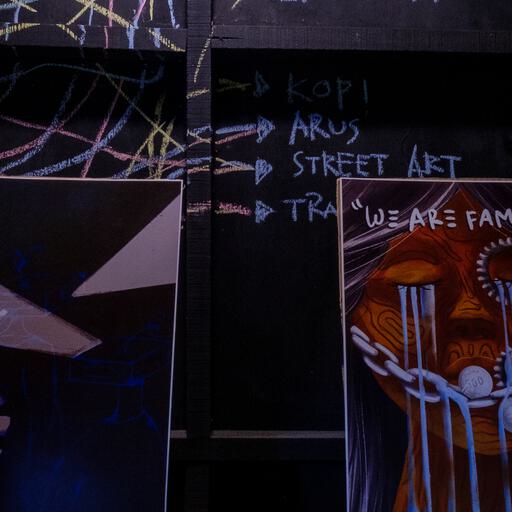 KOPI
ARUS
STREET ART
TRA
"WE ARE FAM
500